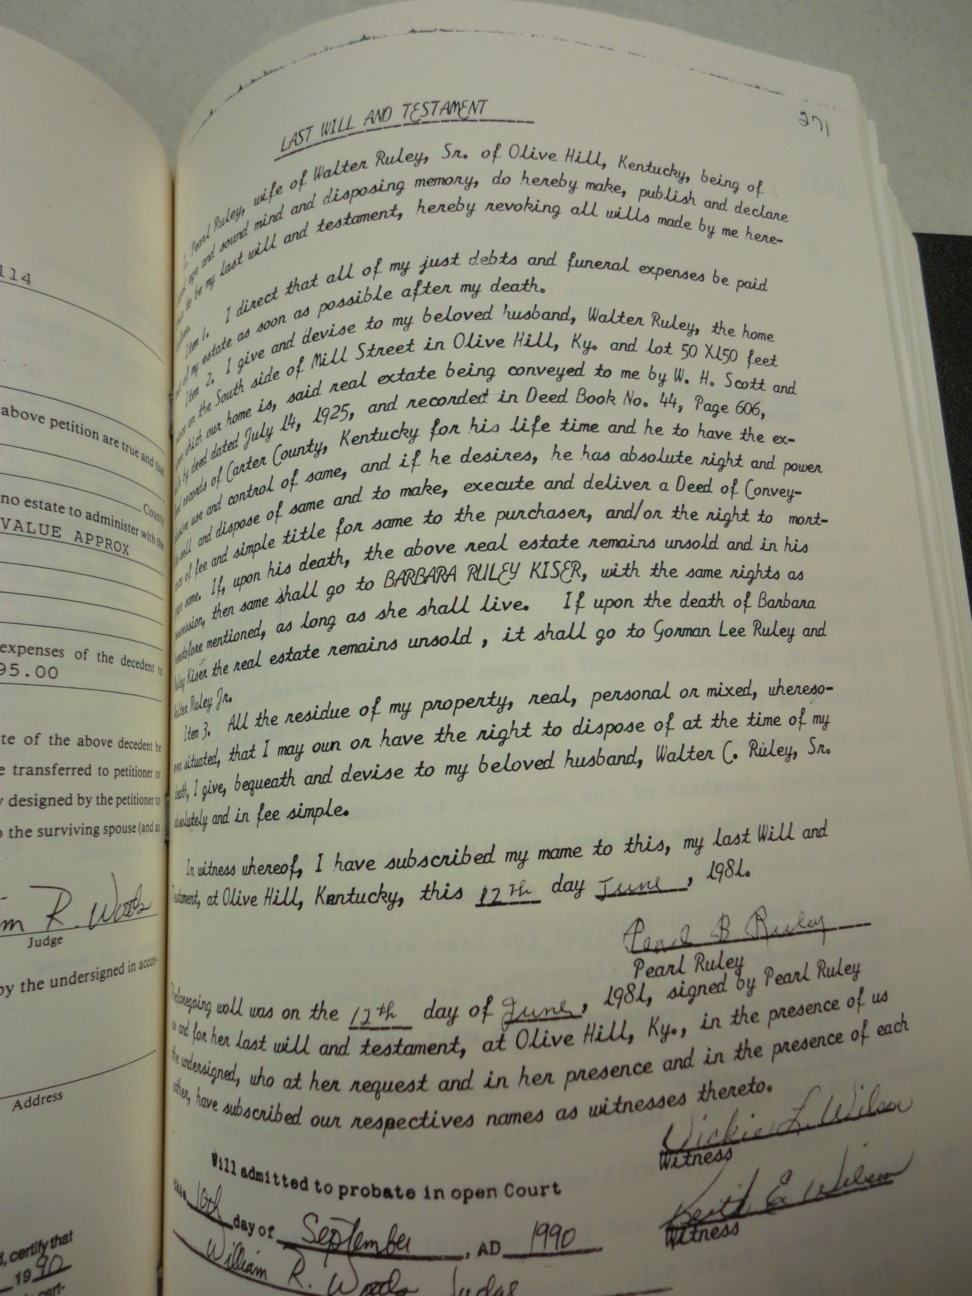 114
above petition are true and that
County
no estate to administer with the
VALUE APPROX
expenses of the decedent
95.00
te of the above decedent be
e transferred to petitioner
y designed by the petitioner
o the surviving spouse (and as
m R. Woods
Judge
by the undersigned in accor-
Address
, certify that
1990
271
LAST WILL AND TESTAMENT
I, Pearl Ruley, wife of Walter Ruley, Sr. of Olive Hill, Kentucky, being of
age and sound mind and disposing memory, do hereby make, publish and declare
to be my last will and testament, hereby revoking all wills made by me here-
Item 1. I direct that all of my just debts and funeral expenses be paid
of my estate as soon as possible after my death.
Item 2. I give and devise to my beloved husband, Walter Ruley, the home
on the South side of Mill Street in Olive Hill, Ky. and lot 50 X150 feet
which our home is, said real extate being conveyed to me by W. H. Scott and
by deed dated July 14, 1925, and recorded in Deed Book No. 44, Page 606,
records of Carter County, Kentucky for his life time and he to have the ex-
use and control of same, and if he desires, he has absolute right and power
sell and dispose of same and to make, execute and deliver a Deed of Convey-
of fee and simple title for same to the purchaser, and/or the right to mort-
same. If, upon his death, the above real estate remains unsold and in his
then same shall go to BARBARA RULEY KISER, with the same rights as
mentioned, as long as she shall live. If upon the death of Barbara
Ruley Kiser the real estate remains unsold , it shall go to Gorman Lee Ruley and
Walter Ruley Jr.
Item 3. All the residue of my property, real, personal or mixed, whereso-
situated, that I may own or have the right to dispose of at the time of my
death, I give, bequeath and devise to my beloved husband, Walter C. Ruley, Sr.
absolutely and in fee simple.
In witness whereof, I have subscribed my mame to this, my last Will and
Testament, at Olive Hill, Kentucky, this 12th day June, 1981.
Pearl B Ruley
Pearl Ruley
foregoing woll was on the 12th day of June, 1981, signed by Pearl Ruley
as and for her last will and testament, at Olive Hill, Ky., in the presence of us
the undersigned, who at her request and in her presence and in the presence of each
other, have subscribed our respectives names as witnesses thereto.
Vickie L. Wilson
Witness
Keith E Wilson
Witness
Will admitted to probate in open Court
this 10th day of September, AD 1990
William R. Woods Judge